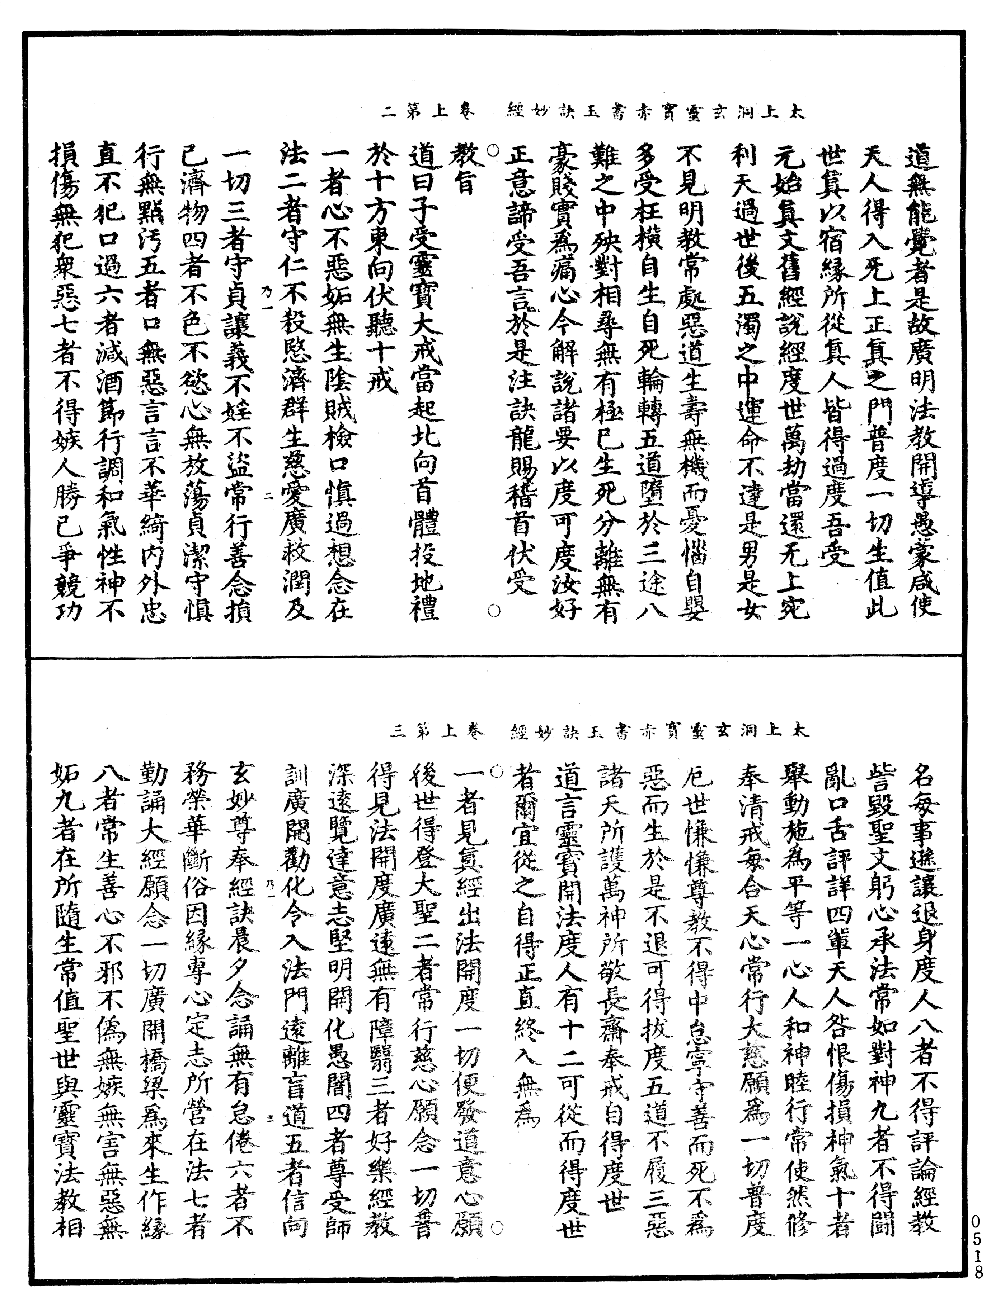 太上洞玄靈寶赤書玉訣妙經　卷上第二
道無能覺者是故廣明法教開導愚蒙咸使
天人得入无上正真之門普度一切生值此
世真以宿緣所從真人皆得過度吾受
元始真文舊經說經度世萬劫當還无上宛
利天過世後五濁之中運命不達是男是女
不見明教常處惡道生壽無機而憂惱自嬰
多受枉橫自生自死輪轉五道墮於三途八
難之中殃對相尋無有極已生死分離無有
豪賤實為痛心今解說諸要以度可度汝好
正意諦受吾言於是注訣龍賜稽首伏受
教旨
道曰子受靈寶大戒當起北向首體投地禮
於十方東向伏聽十戒
一者心不惡妬無生陰賊檢口慎過想念在
法二者守仁不殺愍濟群生慈愛廣救潤及
一切三者守貞讓義不婬不盜常行善念損
己濟物四者不色不慾心無放蕩貞潔守慎
行無點污五者口無惡言言不華綺內外忠
直不犯口過六者減酒節行調和氣性神不
損傷無犯眾惡七者不得嫉人勝己爭競功
乃一
二
太上洞玄靈寶赤書玉訣妙經　卷上第三
名每事遜讓退身度人八者不得評論經教
訾毀聖文躬心承法常如對神九者不得鬪
亂口舌評詳四輩天人咎恨傷損神氣十者
舉動施為平等一心人和神睦行常使然修
奉清戒每合天心常行大慈願為一切普度
厄世慊慊尊教不得中怠寧守善而死不為
惡而生於是不退可得拔度五道不履三惡
諸天所護萬神所敬長齋奉戒自得度世
道言靈寶開法度人有十二可從而得度世
者爾宜從之自得正真終入無為
一者見真經出法開度一切便發道意心願
後世得登大聖二者常行慈心願念一切普
得見法開度廣遠無有障翳三者好樂經教
深遠覽達意志堅明開化愚闇四者尊受師
訓廣開勸化令入法門遠離盲道五者信向
玄妙尊奉經訣晨夕念誦無有怠倦六者不
務榮華斷俗因緣專心定志所營在法七者
勤誦大經願念一切廣開橋梁為來生作緣
八者常生善心不邪不偽無嫉無害無惡無
妬九者在所隨生常值聖世與靈寶法教相
乃一
三
0518